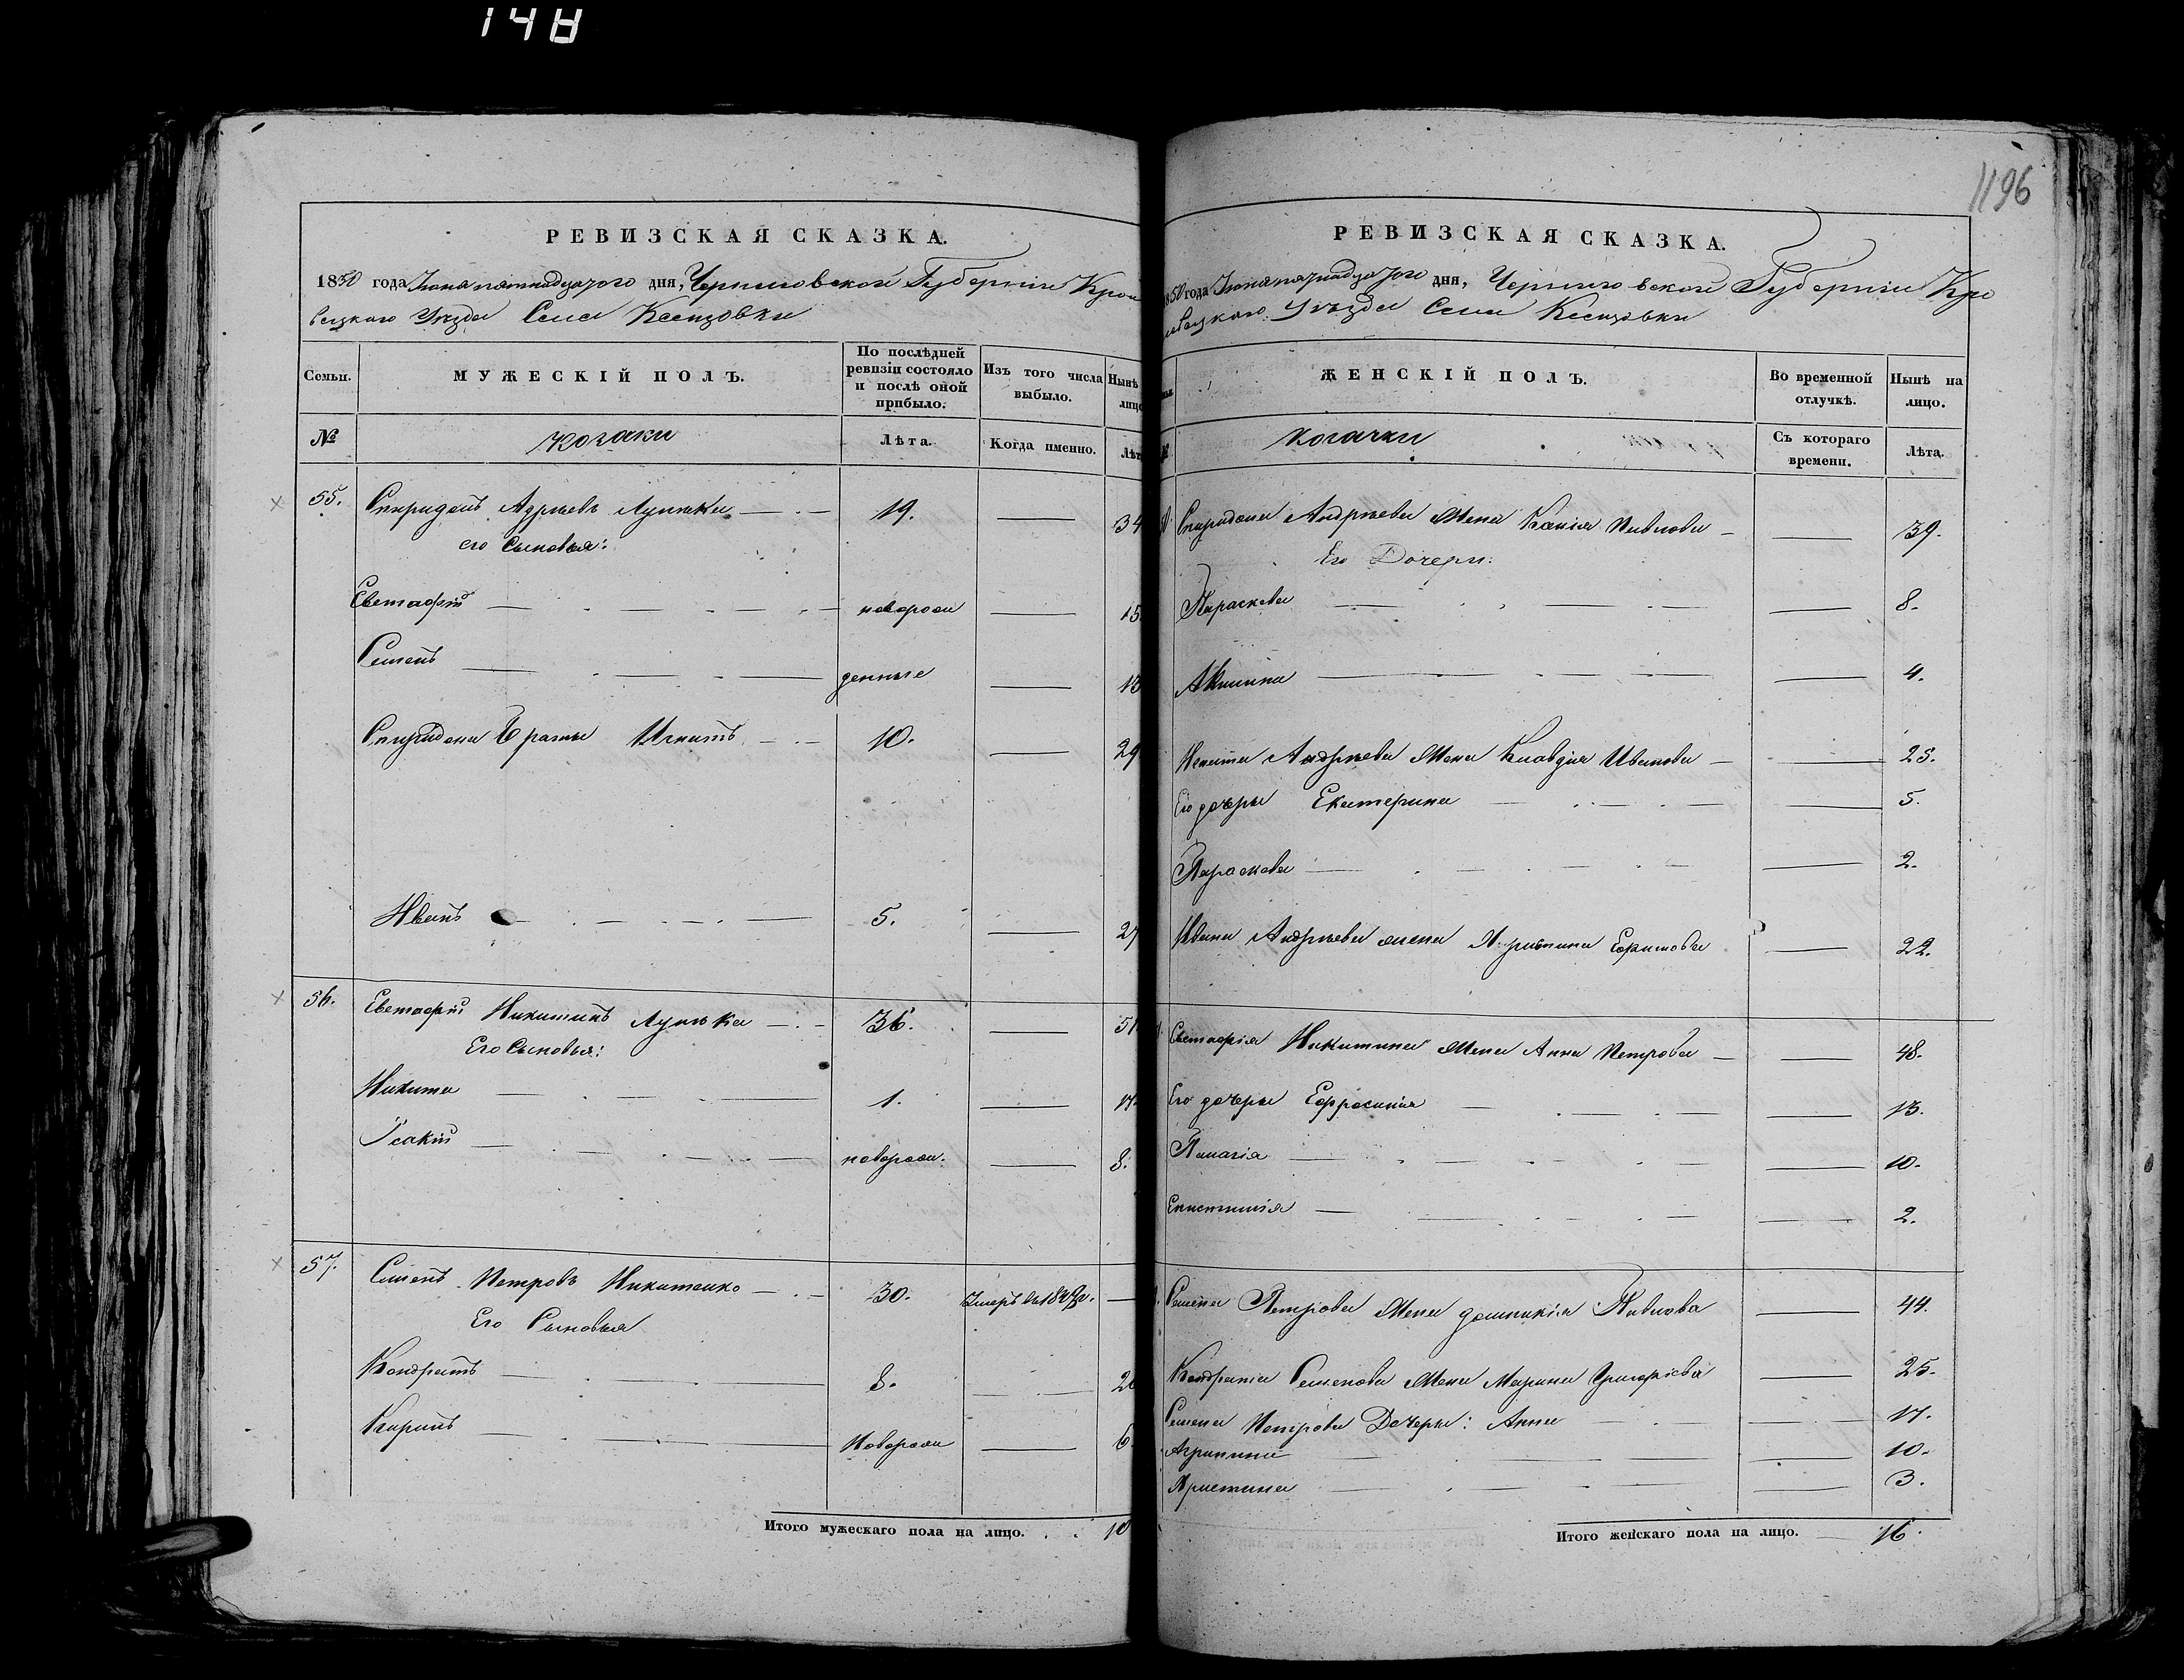 148
1196
РЕВИЗСКАЯ СКАЗКА.
1850 года Іюня пятнадцатого дня, Черниговской Губерніи Кроле
вецкого Уезда Села Ксензовки
Семьи.
МУЖЕСКІЙ ПОЛЪ.
По послѣдней ревизіи состояло и послѣ оной прибыло.
Изъ того числа выбыло.
Нынѣ
лицо
№
козаки
Лѣта.
Когда именно.
Лѣт
55. Спиридонъ Адрѣевъ 19. 34
его Сыновья:
Евстафій новорож 15
Семенъ денные 13
Спиридона Братья Игнатъ 10.
Иванъ 5.
56. Евстафій Никитинъ 36. 51
Его Сыновья:
Никита 1.
Ісакій новорож. 8.
57. Семенъ Петровъ Никитенко 30. Умеръ въ
Его Сыновья
Кондратъ 8.
Новорож 6
Итого мужескаго пола на лицо. 10
РЕВИЗСКАЯ СКАЗКА.
1850 года Іюня пятнадцатого дня, Черниговской Губерніи Кро
левецкого Уѣзда Села Ксензовки
ЖЕНСКІЙ ПОЛЪ.
Во временной отлучкѣ.
Нынѣ на лицо.
козачки
Съ котораго времени.
Лѣта.
Спиридона Андрѣева Жена Павлова 39.
Его Дочери:
Параскева 8.
Акилина 4.
Андрѣева Жена Клавдія Иванова 25.
Его дочеры Екатерина 5.
Параскева 2.
Ивана Андрѣева жена Христина Ефимова 22.
Евстафія Никитина Жена Анна Петрова 48.
Его дочеры Ефросинія 13.
Пелагія 10.
Епистимія 2.
Семена Петрова Жена Домникія Павлова 44.
Кондратія Семенова Жена Марина Григоріева 25.
Семена Петрова Дочеры: Анна 17.
Агрипина 10.
Христина 3.
Итого женскаго пола на лицо. 16.